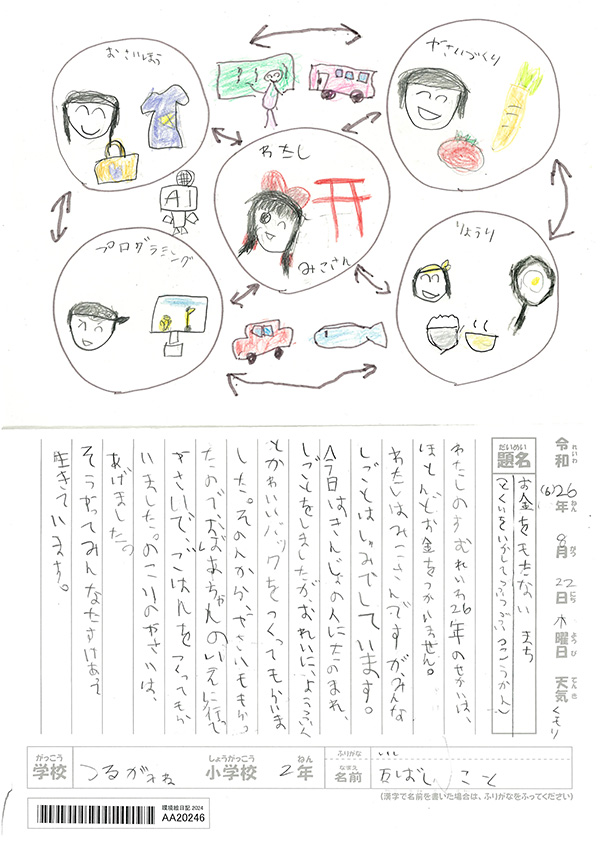 おさいほう
やさいづくり
わたし
みこさん
AI
プログラミング
りょうり
令和(6)26年8月22日水曜日 天気 くもり
れいわ ねん がつ にち ようび てんき
だいめい
題名
お金をもたない まち
(とくいをいかしてぶつぶつこうかん)
わたしのすむれいわ26年のせかいは、
ほとんどお金をつかいません。
わたしはみこさんですが、みんな
しごとはしゅみでしています。
今日はきんじょの人にたのまれ、
しごとをしましたが、おれいに、ようふく
とかわいいバックをつくってもらいま
した。その人から、やさいももらっ
たので、おばあちゃんのいえに行って
やさいで、ごはんをつくってもら
いました。のこりのやさいは、
あげました。
そうやってみんなたすけあって
生きています。
がっこう しょうがっこう ねん
学校 つるがみね 小学校 2年
ふりがな いし
なまえ
名前 石ばし こと
(漢字で名前を書いた場合は、ふりがなをふってください)
環境絵日記 2024
AA20246